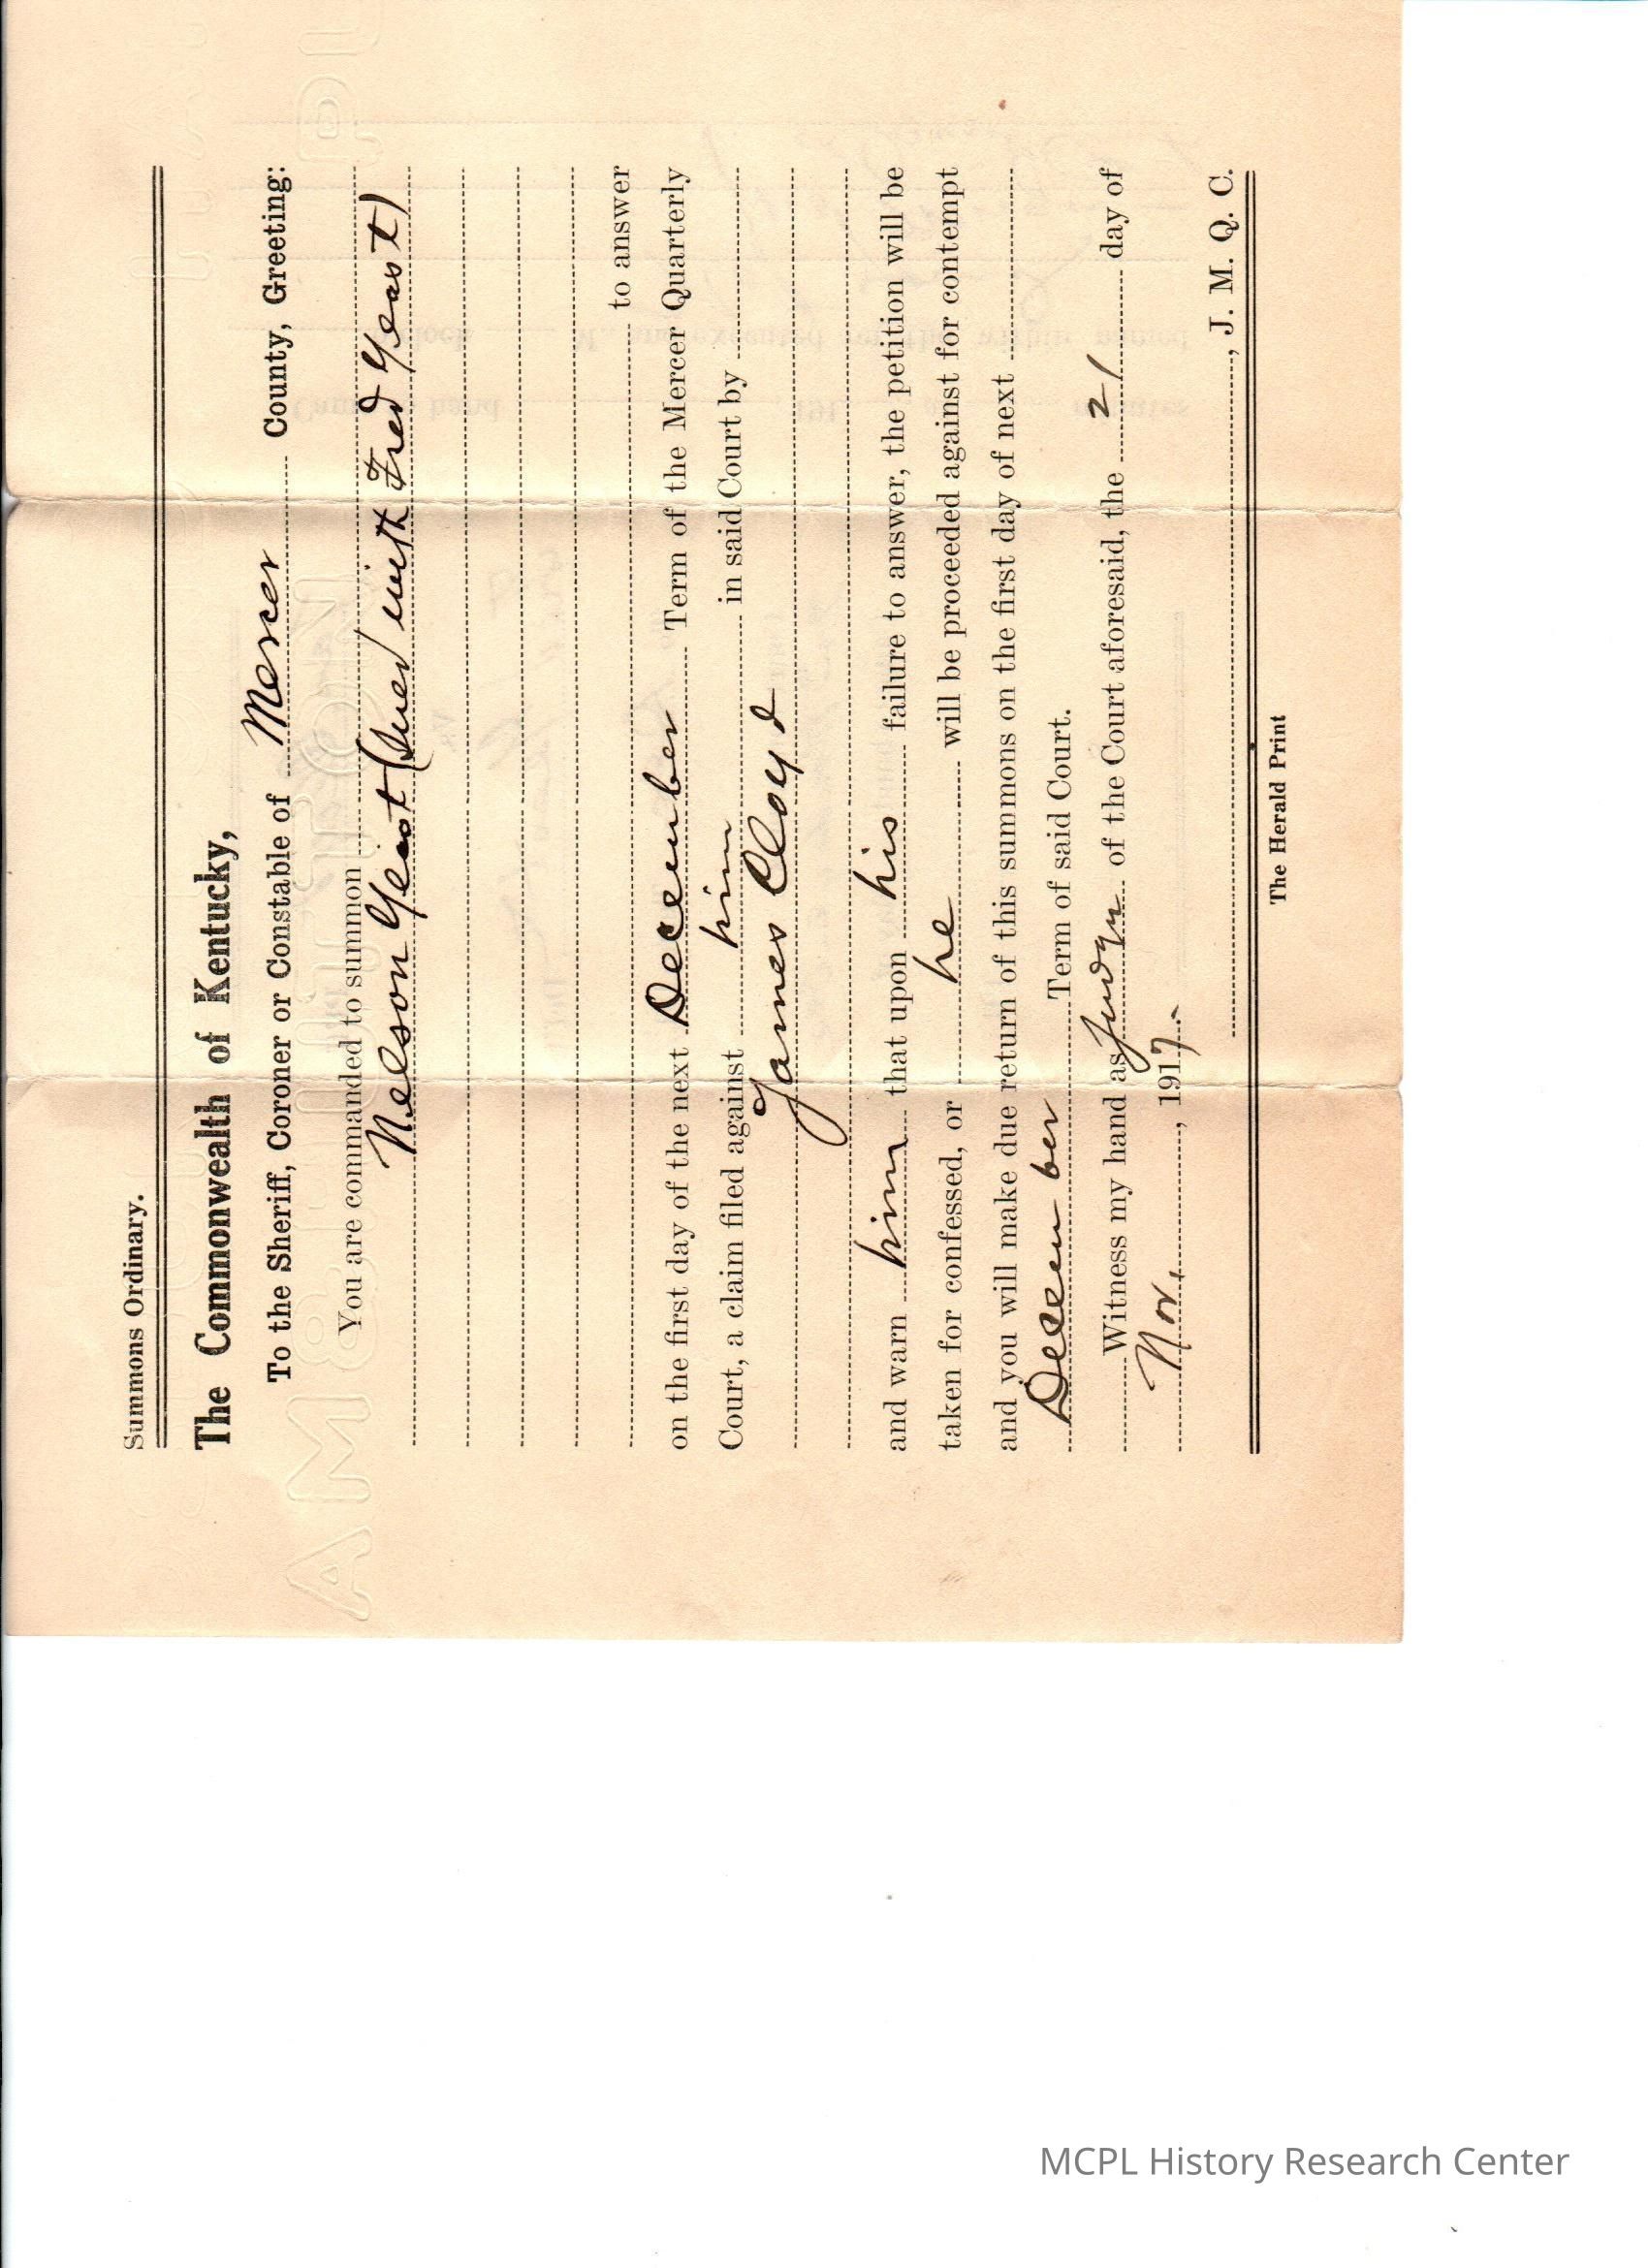 Summons Ordinary.
The Commonwealth of Kentucky,
To the Sheriff, Coroner or Constable of Mercer County, Greeting:
You are commanded to summon
Nelson Yeast (sued with Fred Yeast)
to answer
on the first day of the next December Term of the Mercer Quarterly
Court, a claim filed against him in said Court by
James Cloyd
and warn him that upon his failure to answer, the petition will be
taken for confessed, or he will be proceeded against for contempt
and you will make due return of this summons on the first day of next
December Term of said Court.
Witness my hand as Judge of the Court aforesaid, the 21 day of
Nov. , 1917.
, J. M. Q. C.
The Herald Print
MCPL History Research Center